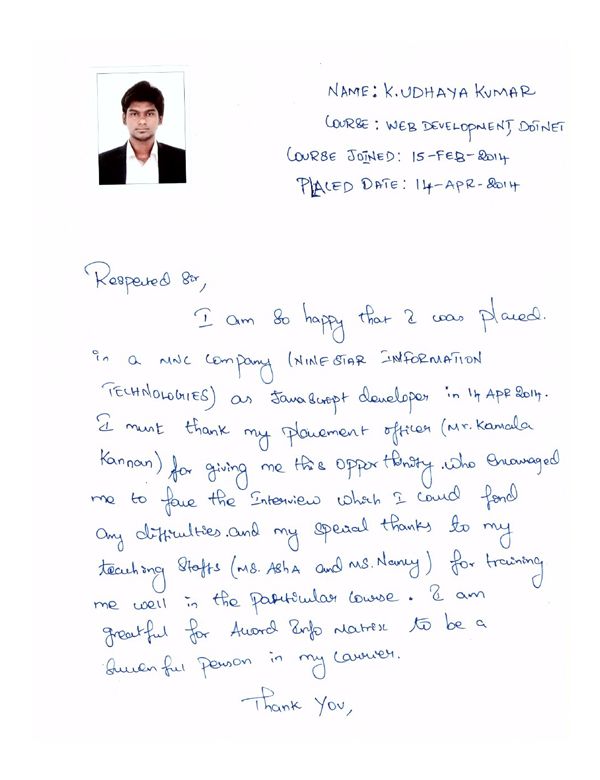 NAME: K.UDHAYA KUMAR
COURSE: WEB DEVELOPMENT, DOTNET
COURSE JOINED: 15-FEB-2014
PLACED DATE: 14-APR-2014
Respected Sir,
I am so happy that I was placed.
in a MNC Company (NINESTAR INFORMATION
TECHNOLOGIES) as JavaScript developer in 14 APR 2014.
I must thank my placement officer (Mr. Kamala
Kannan) for giving me this opportunity. who encouraged
me to face the Interview which I could find
any difficulties. and my special thanks to my
teaching Staffs (MS. ASHA and MS. Nancy) for training
me well in the particular course. I am
greatful for Accord Info Matrix to be a
successful person in my carrier.
Thank You,